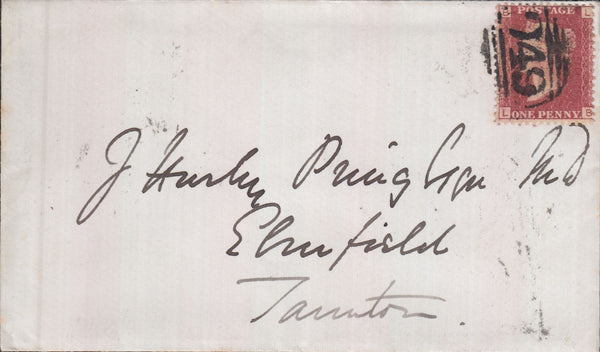 B POSTAGE L
L ONE PENNY B
J Hurly Pring Esqre MD
Elmfield
Taunton.